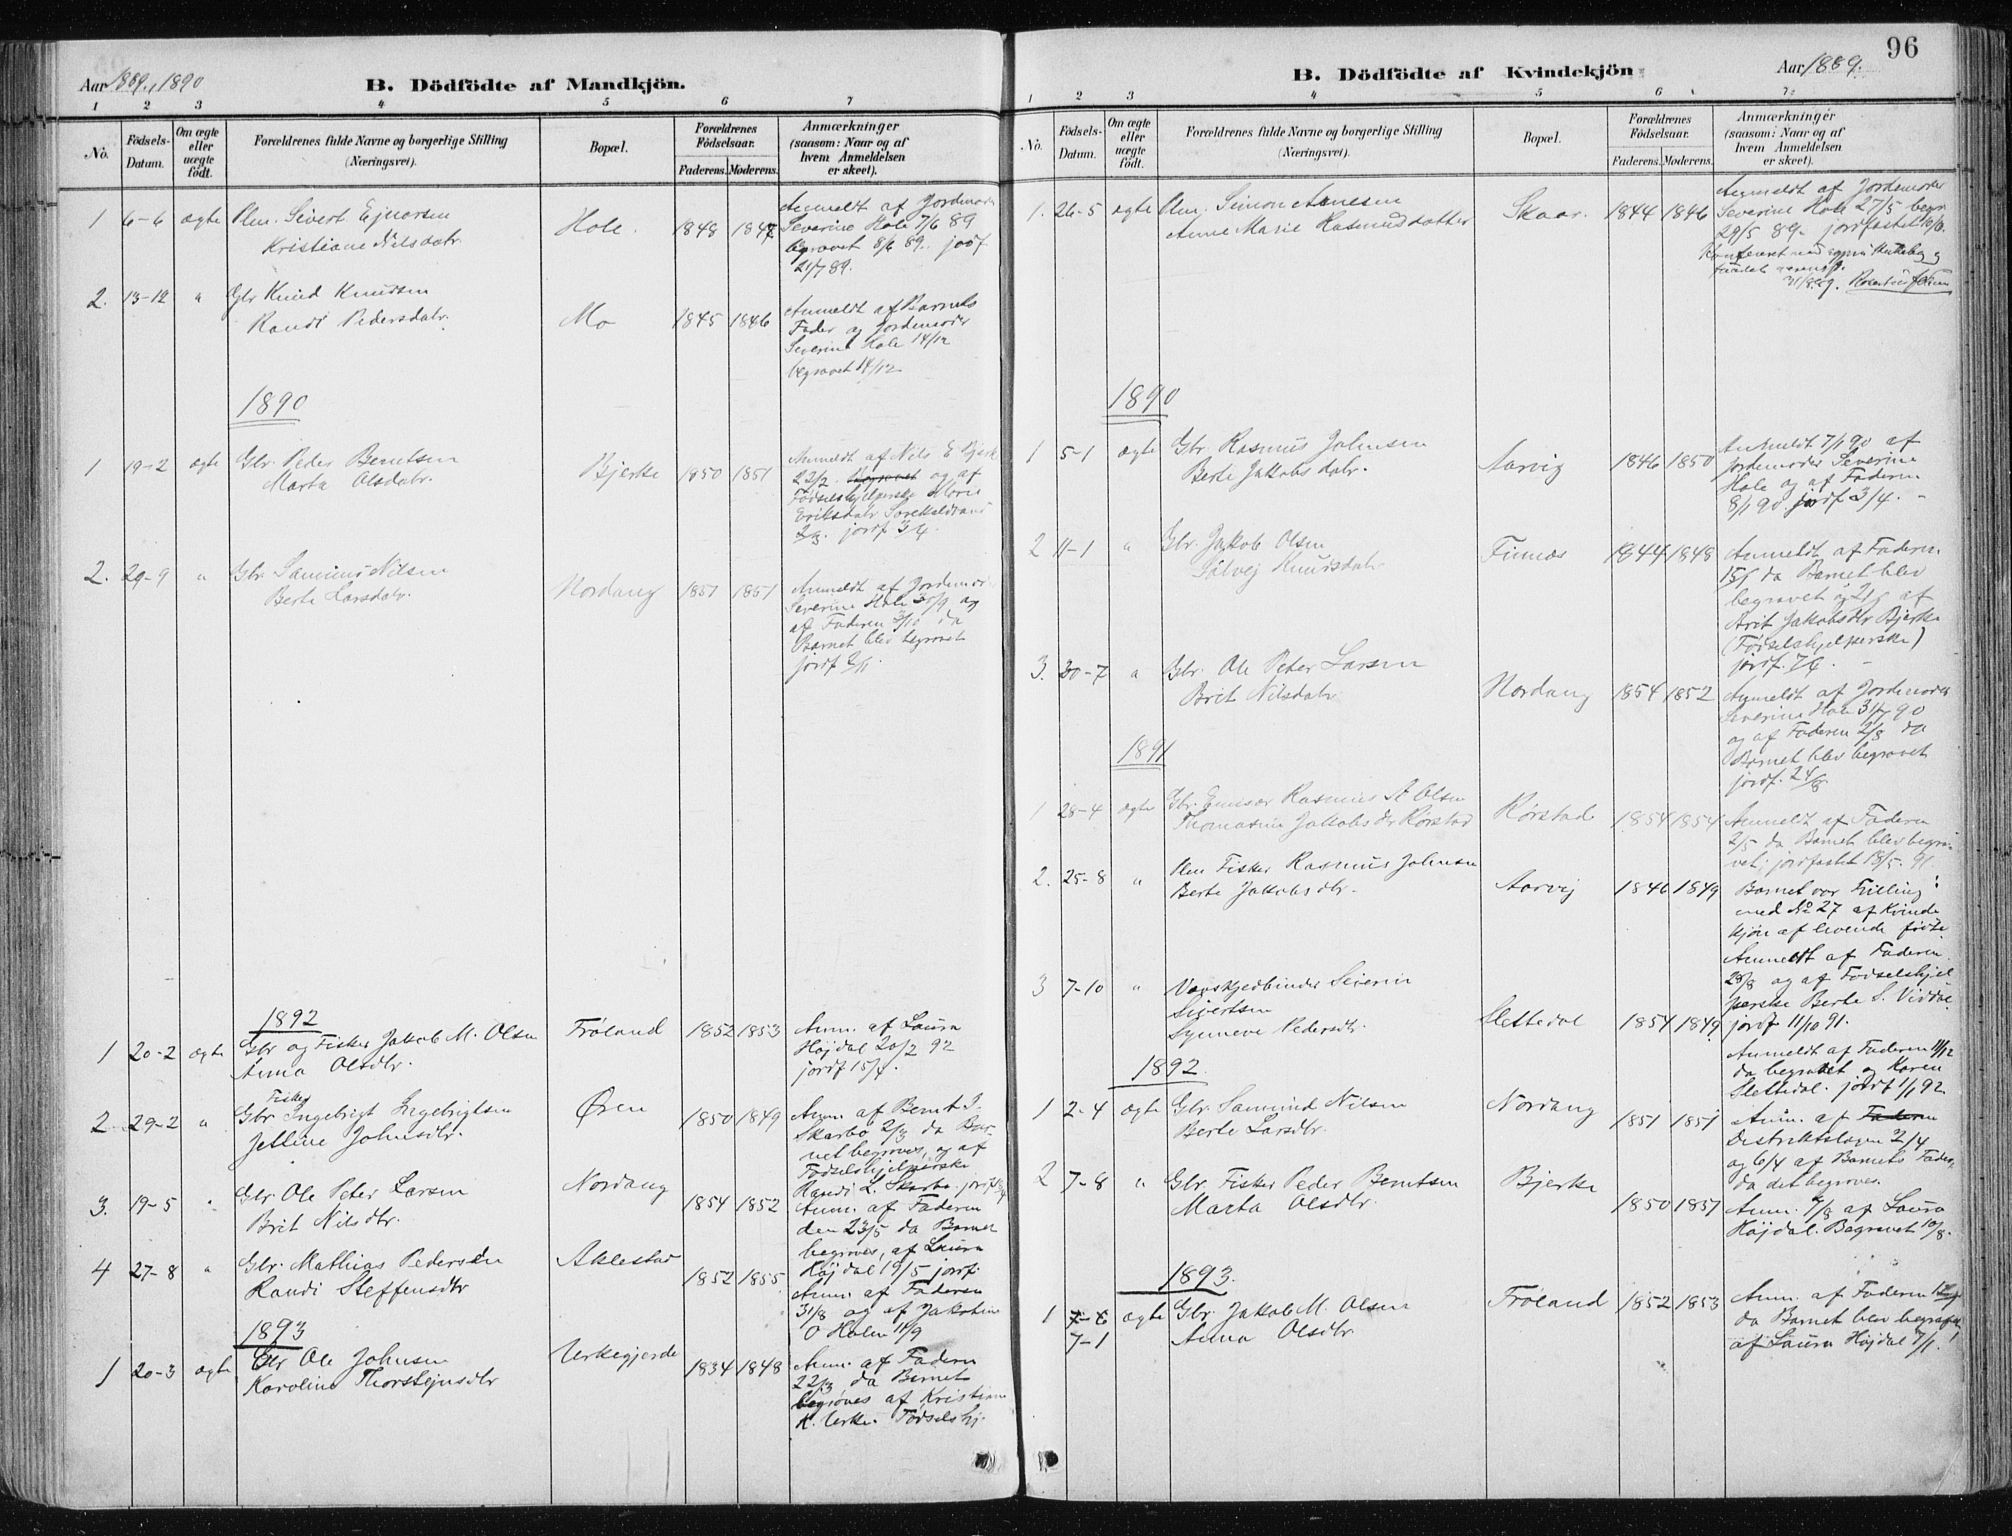 Aar 1889, 1890
B. Dödfödte af Mandkjön.
1 2 3 4 5 6 7
No.
Födsels-
Datum.
Om ægte
eller
uægte
födt.
Forældrenes fulde Navne og borgerlige Stilling
(Næringsvei).
Bopæl.
Forældrenes
Födselsaar.
Faderens. Moderens.
Anmærkninger
(saasom: Naar og af
hvem Anmeldelsen
er skeet).
1 6-6 ægte Plm. Sivert Ejnarsen Hole. 1848 1847 Anmeldt af Jordemoder
Kristiane Nilsdatr. Severine Hole 7/6 89
begravet 8/6 89. jordf.
21/7 89.
2. 13-12 " Gbr Knud Knudsen Mo 1845 1846 Anmeldt af Barnets
Randi Pedersdatr. Fader og Jordemoder
Severine Hole 14/12
begravet 14/12
1890
1 19-2 ægte Gbr. Peder Berntsen Bjerke 1850 1851 Anmeldt af Nils E Bjerk
Marta Olsdatr. 22/2. begravet og af
Fødselshjelperske Marie
Eriksdatr
jordf 3/4.
2. 29-9 " Gbr. Samund Nilsen Nordang 1851 1851 Anmeldt af Jordemoder
Berte Larsdatr. Severine Hole 30/9 og
af Faderen 3/10 da
Barnet blev begravet
jordf 2/11.
1892
1 20-2 ægte Gbr og Fisker Jakob M. Olsen Frøland 1852 1853 Anm. af Laura
Anna Olsdtr. Højdal 20/2 92
jordf 15/4.
Fisker
2. 29-2 " Gbr Ingebrigt Ingebrigtsen Øren 1850 1849 Anm. af Bernt I.
Jelline Johnsdtr. Skarbø 2/3 da Bar-
net begroves, og af
Fødselshjelperske
Randi L. Skarbø. jordf
3. 19-5 " Gbr. Ole Peter Larsen Nordang 1854 1852 Anm. af Faderen
Brit Nilsdtr. den 23/5 da Barnet
begroves, af Laura
Højdal 19/5 jordf.
4 27-8 " Gbr. Mathias Pedersen Aklestad 1852 1855 Anm. af Faderen
Randi Steffensdtr 31/8 og af Jakobine
O Holm 11/9
1893
1 20-3 ægte Gbr Ole Johnsen Urkegjerde 1834 1848 Anm. af Faderen
Karoline Thorstejnsdtr 22/3 da Barnet
begroves af Kristiane
K. Urke. Fødselshj.
96
Aar 1889.
B. Dödfödte af Kvindekjön
1 2 3 4 5 6 7
No.
Födsels-
Datum.
Om ægte
eller
uægte
födt.
Forældrenes fulde Navne og borgerlige Stilling
(Næringsvei).
Bopæl.
Forældrenes
Födselsaar.
Faderens. Moderens.
Anmærkninger
(saasom: Naar og af
hvem Anmeldelsen
er skeet).
1. 26-5 ægte Plm. Simon Arnesen Skaar. 1844 1846 Anmeldt af Jordemoder
Anne Marie Rasmusdatter Severine Hole 27/5 begr.
29/5 89. jordfæstet
31/8 89.
1890
1 5-1 ægte Gbr. Rasmus Johnsen Aarvig 1846 1850 Anmeldt 7/1 90 af
Berte Jakobsdatr. Jordemoder Severine
Hole og af Faderen
8/1 90 jordf 3/4.
2 11-1 " Gbr. Jakob Olsen Finnæs 1844 1848 Anmeldt af Faderen
Sølvej Knudsdatr 15/1 da Barnet blev
begravet og af
Brit Jakobsdtr Bjerke
(Fødselshjelperske)
jordf. 7/4.
3. 30-7 " Gbr. Ole Peter Larsen Nordang 1854 1852 Anmeldt af Jordemoder
Brit Nilsdatr Severine Hole 31/7 90
og af Faderen 2/8 da
Barnet blev begravet
jordf. 24/8.
1891
1 28-4 ægte Gbr. Rasmus A Olsen Rørstad 1854 1854 Anmeldt af Faderen
Thomasine Jakobsdtr Rørstad 2/5 da Barnet blev begra-
vet; jordfæstet 18/5. 91.
2. 25-8 " Plm Fisker Rasmus Johnsen Aarvig 1846 1849 Barnet var Tvilling
Berte Jakobsdtr. med No 27 af Kvinde
kjøn af levende fødte.
Anmeldt af Faderen
29/8 og af Fødselshjel
perske Berte S. Viddal
jordf 11/10 91.
3 7-10 " Vævskjedbinder Severin Slettedal 1854 1849
Sivertsen Anmeldt af Faderen 11/12
Synneve Pedersdtr. da begravet og Karen
Slettedal. jordf 1/1 92
1892.
1 2-4 ægte Gbr. Samund Nilsen Nordang 1851 1851 Anm. af Faderen
Berte Larsdtr. Destriktslægen 2/4
og 6/4 af Barnets Fader,
da det begroves.
2 7-8 " Gbr. Fisker Peder Berntsen Bjerke 1850 1851 Anm. 9/8 af Laura
Marta Olsdtr. Højdal. Begravet 10/8.
1893.
1 7-1 ægte Gbr. Jakob M. Olsen Frøland 1852 1853 Anm. af Faderen
Anna Olsdtr da Barnet blev begravet
af Laura Højdal 7/1.